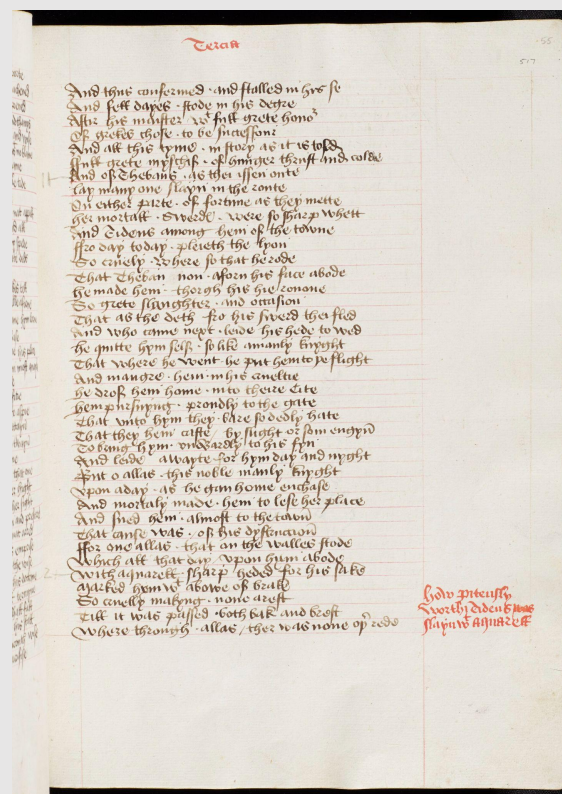 Tercia
55
517
And thus confermed · and stalled in his se
And fele dayes · stode in his degre
Aftir his maister wt full grete honor
Of grekes chose · to be successour
And all this tyme · in story as it is told
ffull grete myschif · of hunger thrust and colde
And of Thebans · as thei issen oute
lay many one slayn in the route
In either parte · of fortune as they mette
her mortall · Swerdes · were so sharp whett
And Tideus among · hem of the towne
ffro day to day · pleieth the lyon
So cruely · where so that he rode
That Theban · non · aforn his face abode
he made hem · thorgh his hie renone
So grete slaughter · and occision
That as the deth · fro his swerd thei fled
And who came next · leide his hede to wed
he quitte hym self · so like a manly knyght
That where he went · he put hem to ye flight
And maugre · hem · in his crueltie
he drof hem home · in to theire Cite
hem pursuyng · proudly to the gate
That unto hym they · bare so dedly hate
That they hem caste · by slight or som engyn
To bryng hym · unwardly to his fyn
And leide · awayte · for hym day and nyght
But o allas · this noble manly knyght
Upon a day · as he gan hem enchase
And mortaly made · hem to lese her place
And sued hem · almost to the town
That cause was · of his dystruccion
ffor one allas · that on the walles stode
Which all that day · upon him abode
With a quarell sharp · heded for his sake
Marked hym wt a bowe of brake
So cruelly makyng · none arest
Till it was passed · both bak and brest
Where through · allas / ther was none oþr rede
how pitously
worthi Tideus was
slayn wt a quarell